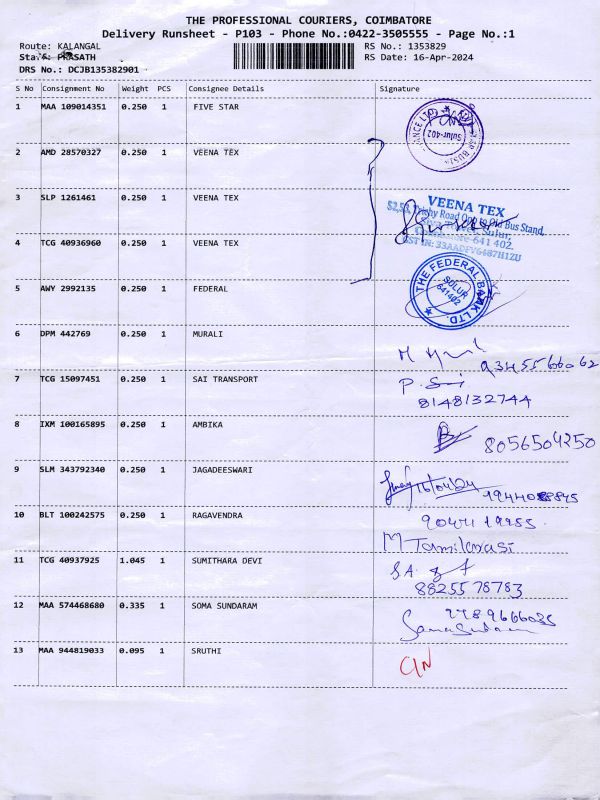 THE PROFESSIONAL COURIERS, COIMBATORE
Delivery Runsheet - P103 - Phone No.:0422-3505555 - Page No.:1
Route: KALANGAL
RS No.: 1353829
Staff: PRASATH
RS Date: 16-Apr-2024
DRS No.: DCJB135382901
S No Consignment No Weight PCS Consignee Details Signature
1 MAA 109014351 0.250 1 FIVE STAR
Sulur-402
2 AMD 28570327 0.250 1 VEENA TEX
3 SLP 1261461 0.250 1 VEENA TEX
VEENA TEX
52,53, Trichy Road Opp to Old Bus Stand,
Sulur,
641 402.
GSTIN: 33AADFV6487H1ZU
4 TCG 40936960 0.250 1 VEENA TEX
5 AWY 2992135 0.250 1 FEDERAL
THE FEDERAL BANK LTD.
SULUR
641402
6 DPM 442769 0.250 1 MURALI
9345566062
7 TCG 15097451 0.250 1 SAI TRANSPORT
8148132744
8 IXM 100165895 0.250 1 AMBIKA
8056504250
9 SLM 343792340 0.250 1 JAGADEESWARI
16/04/24
10 BLT 100242575 0.250 1 RAGAVENDRA
M Tamilarasi
11 TCG 40937925 1.045 1 SUMITHARA DEVI
8825578783
12 MAA 574468680 0.335 1 SOMA SUNDARAM
Somasundaram
13 MAA 944819033 0.095 1 SRUTHI
C/N